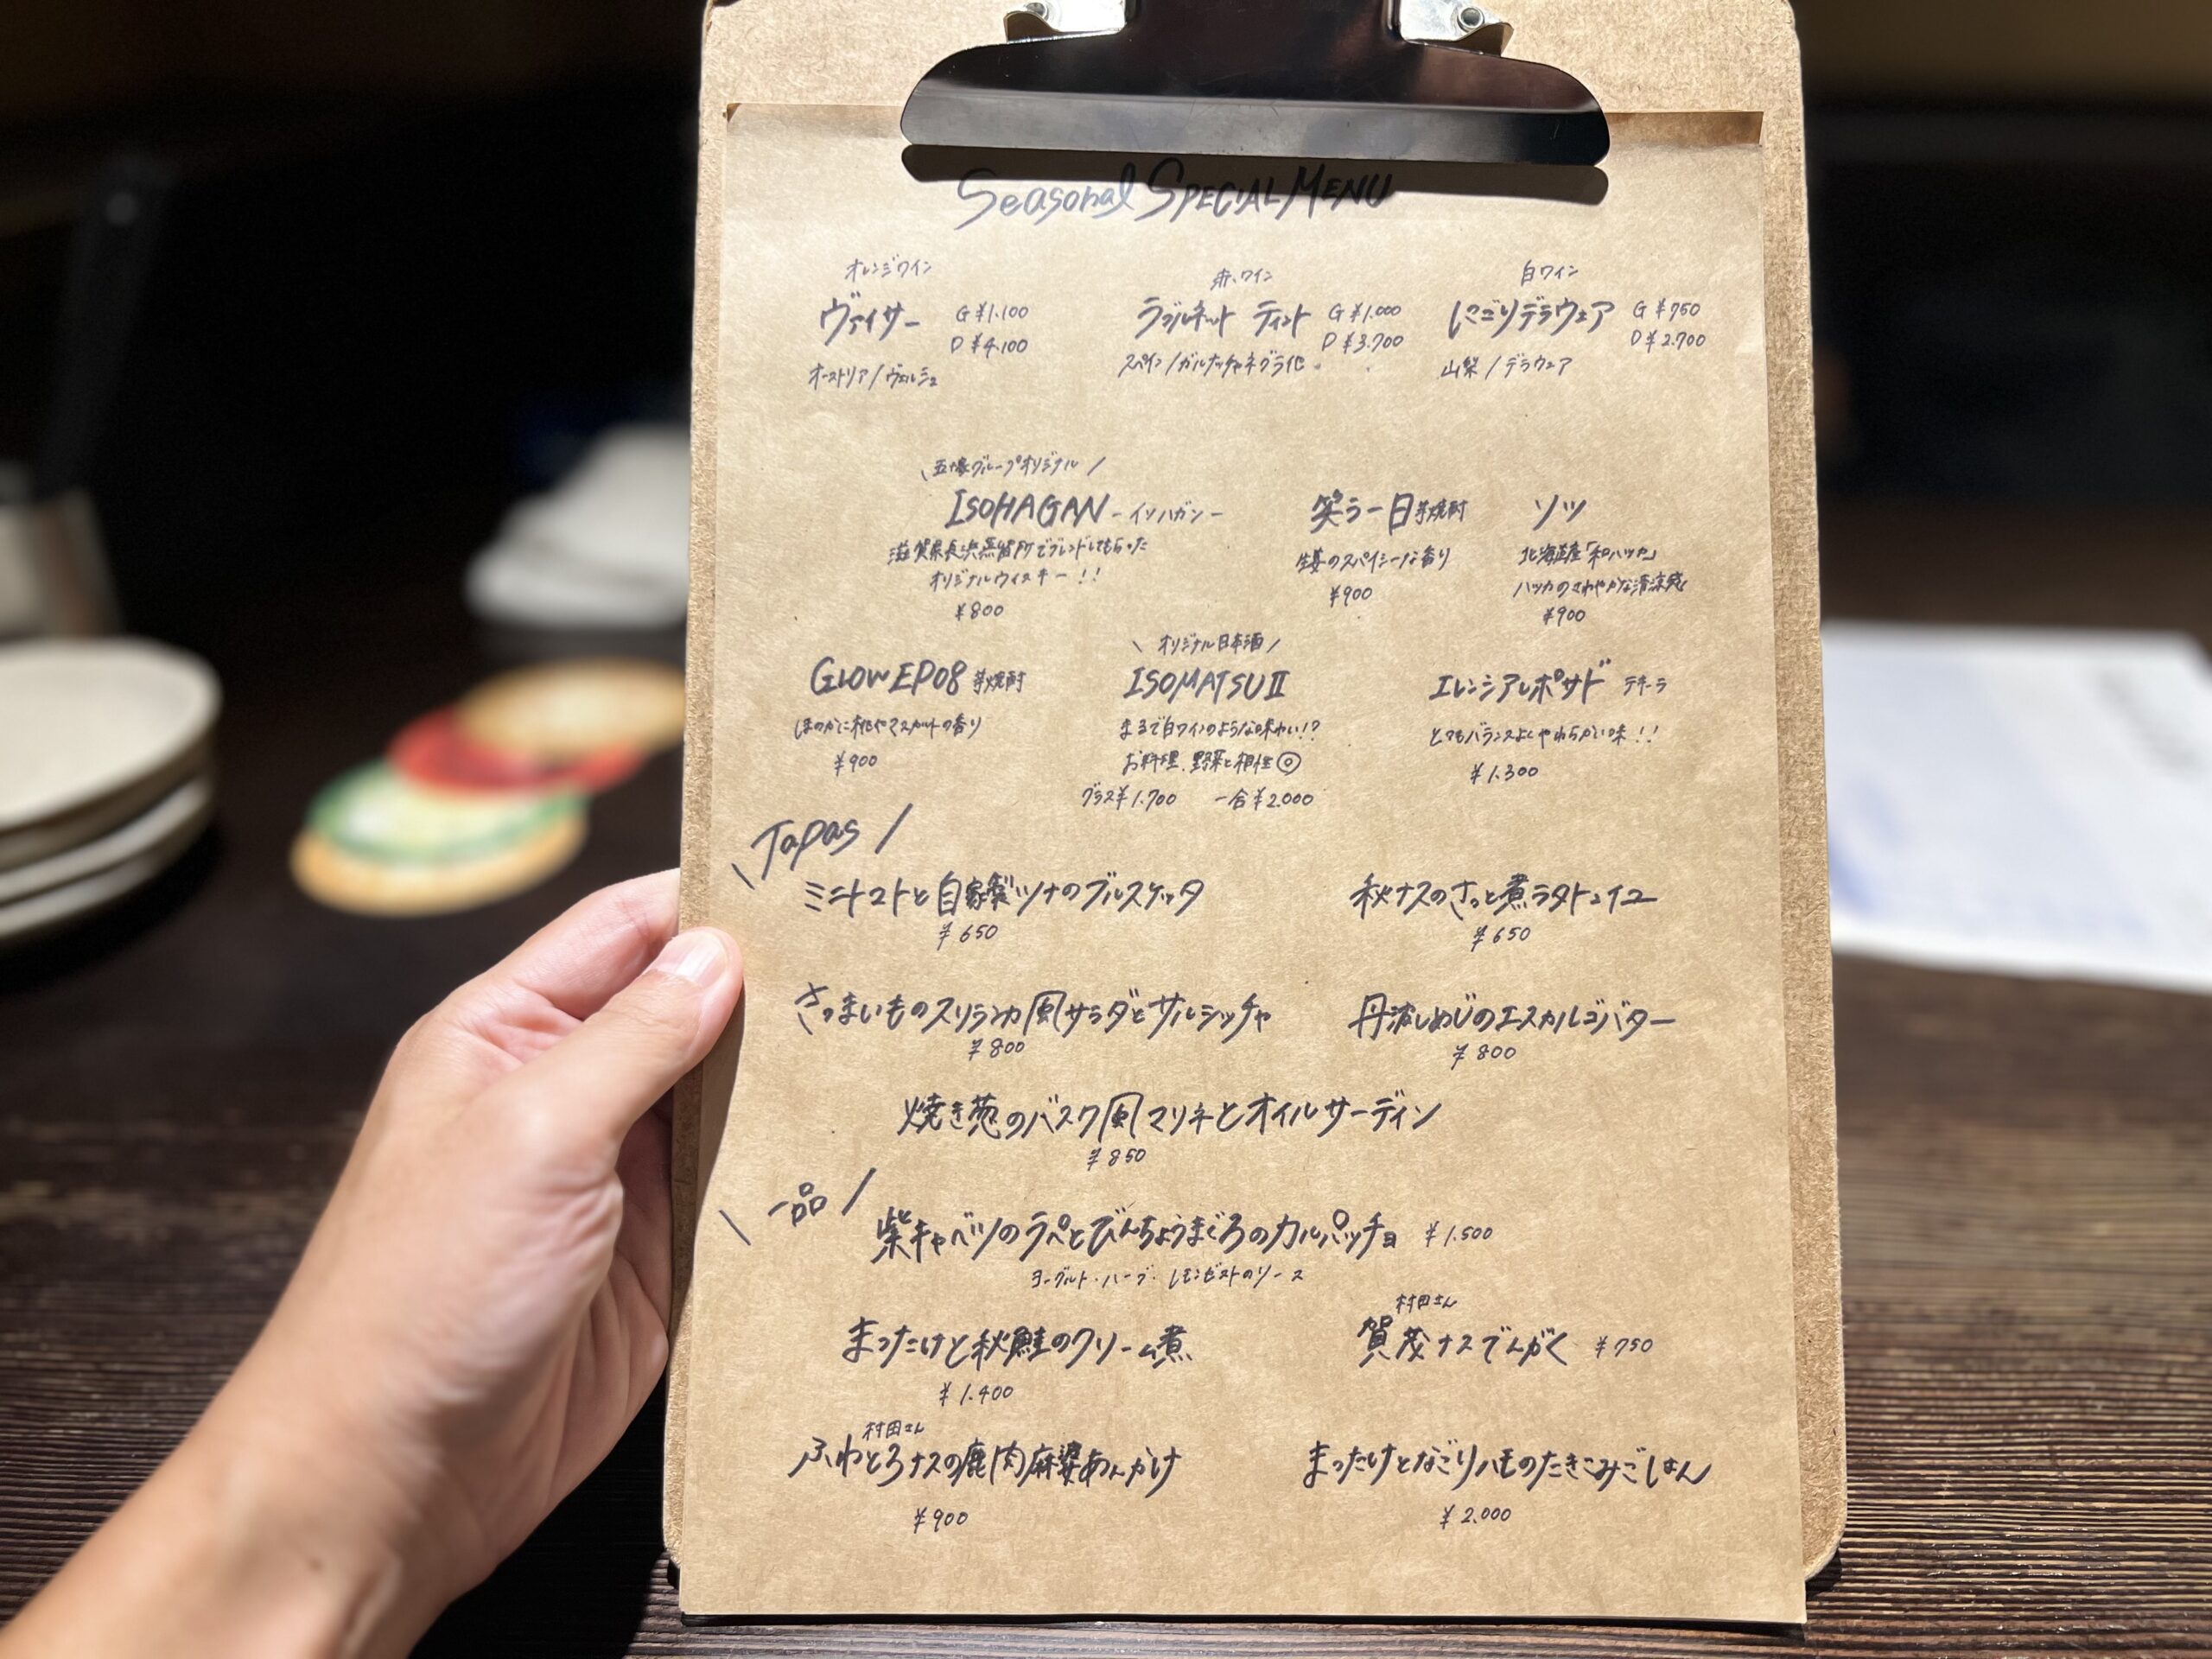 Seasonal SPECIAL MENU
オレンジワイン
ヴァイサー G ¥1.100
D ¥4.100
オーストリア/ヴェルシュ
赤ワイン
ラブルネット ティント G ¥1.000
D ¥3.700
スペイン/ガルナッチャネグラ他
白ワイン
にごりデラウェア G ¥750
D ¥2.700
山梨/デラウェア
\グループオリジナル/
ISOHAGAN -イソハガン-
滋賀県長浜蒸留所でブレンドしてもらった
オリジナルウィスキー!!
¥800
笑う一日 芋焼酎
生姜のスパイシーな香り
¥900
ソツ
北海道産「和ハッカ」
ハッカのさわやかな清涼感
¥900
GLOW EP08 芋焼酎
ほのかに桃やマスカットの香り
¥900
\オリジナル日本酒/
ISOMATSU II
まるで白ワインのような味わい!?
お料理、野菜と相性◎
グラス¥1.700 一合¥2.000
エレンシアレポサド テキーラ
とてもバランスよくやわらかい味!!
¥1.300
\Tapas/
ミニトマトと自家製ツナのブルスケッタ
¥650
秋ナスのさっと煮ラタトゥイユ
¥650
さつまいものスリランカ風サラダとサルシッチャ
¥800
丹波しめじのエスカルゴバター
¥800
焼き葱のバスク風マリネとオイルサーディン
¥850
\一品/
紫キャベツのラペとびんちょうまぐろのカルパッチョ ¥1.500
ヨーグルト・ハーブ・レモンゼストのソース
まつたけと秋鮭のクリーム煮
¥1.400
村田さん
賀茂ナスでんがく ¥750
村田さん
ふわとろナスの鹿肉麻婆あんかけ
¥900
まつたけとなごりハモのたきこみごはん
¥2.000